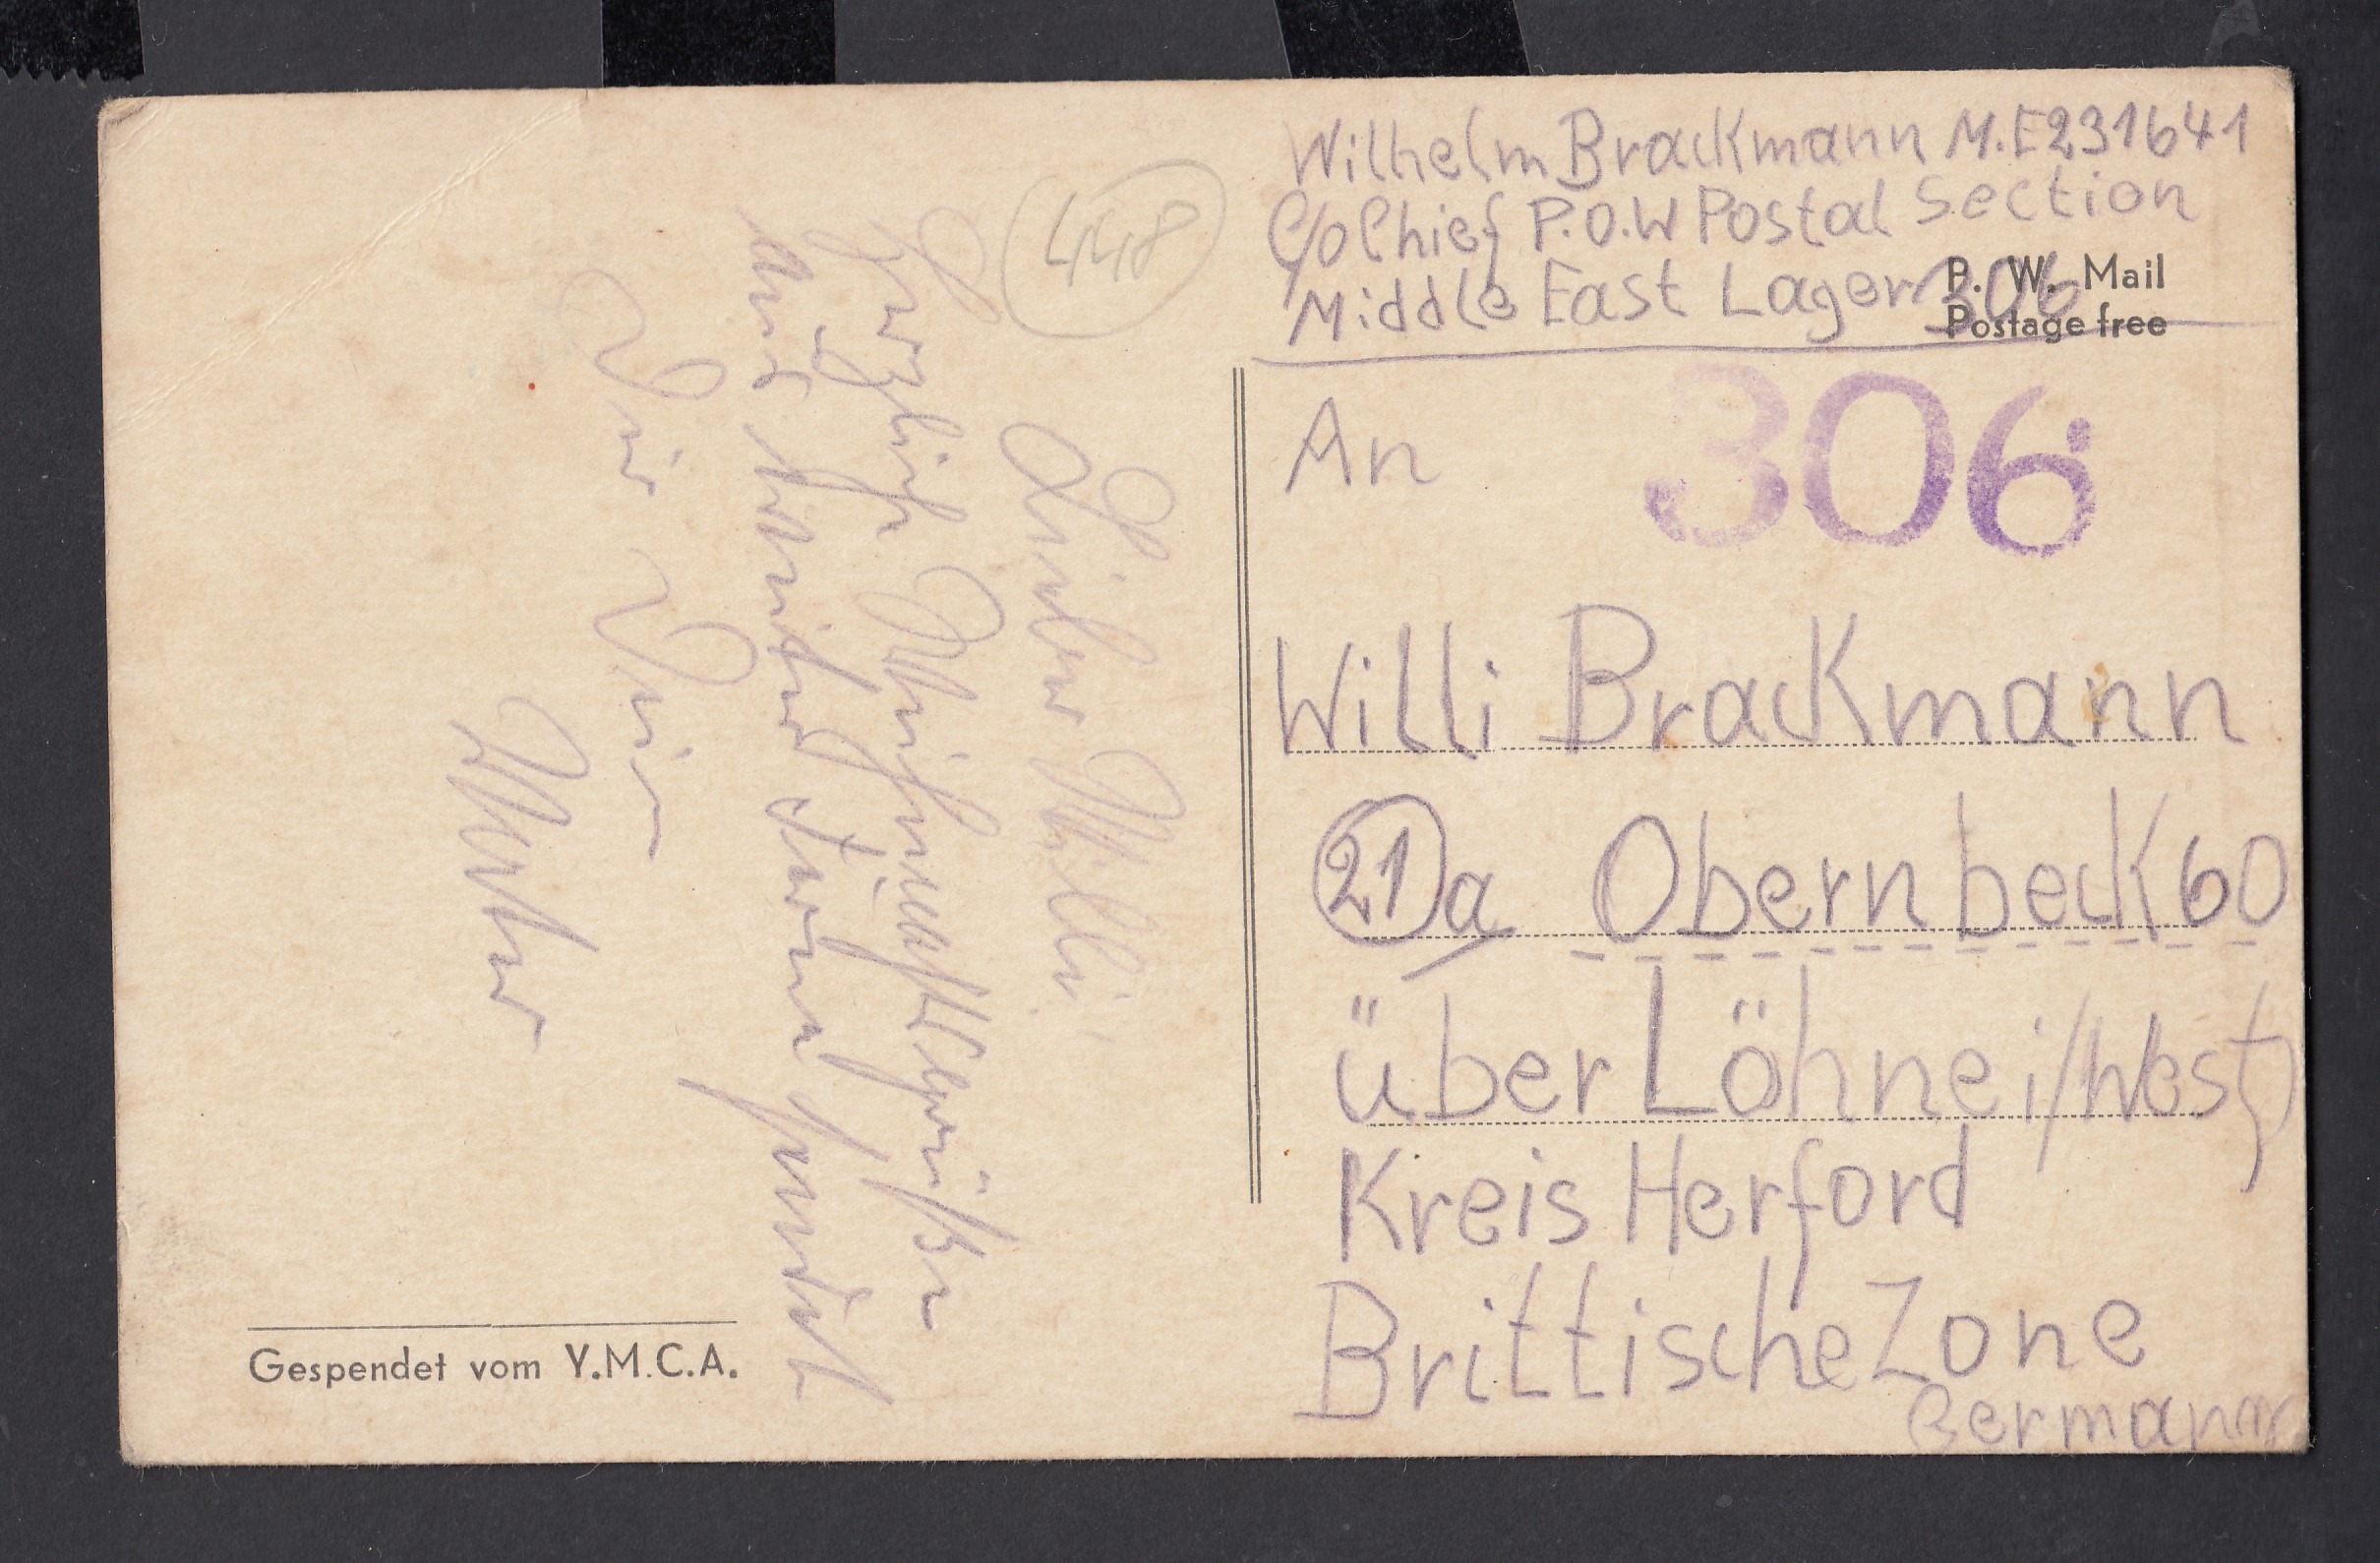 Wilhelm Brackmann M.E231641
C/o Chief P.O.W Postal Section
Middle East Lager 306
P. W. Mail
Postage free
306
An
Willi Brackmann
21a Obernbeck 60
über Löhne i/West
Kreis Herford
Brittische Zone
Germany
448
Lieber Willi!
Herzliche Weihnachtsgrüße
aus weiter Ferne sendet
Dir Dein
Vater
Gespendet vom Y.M.C.A.